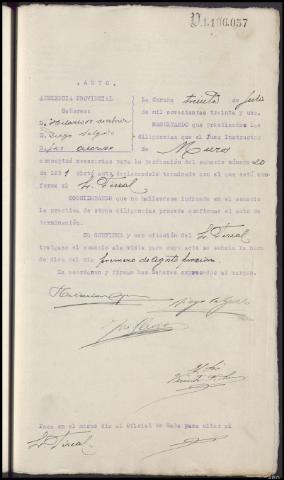 D1.186.057
AUTO
AUDIENCIA PROVINCIAL
Señores:
D.
D. Diego Salgado
D. José Alonso
La Coruña treinta de Julio
de mil novecientos treinta y uno.
RESULTANDO que practicadas las
diligencias que el Juez Instructor
de Muros
conceptuó necesarias para la terminación del sumario número 20
de 1931 dictó auto declarándolo terminado con el que está con-
forme el S. Fiscal
CONSIDERANDO que no hallándose indicada en el sumario
la práctica de otras diligencias procede confirmar el auto de
terminación.
SE CONFIRMA y con citación del S. Fiscal
tráigase el sumario a la vista para cuyo acto se señala la hora
de diez del día primero de Agosto próximo
Lo acordaron y firman los Señores expresados al margen.
Pasa en el mismo día al Oficial de Sala para citar al
S. Fiscal.